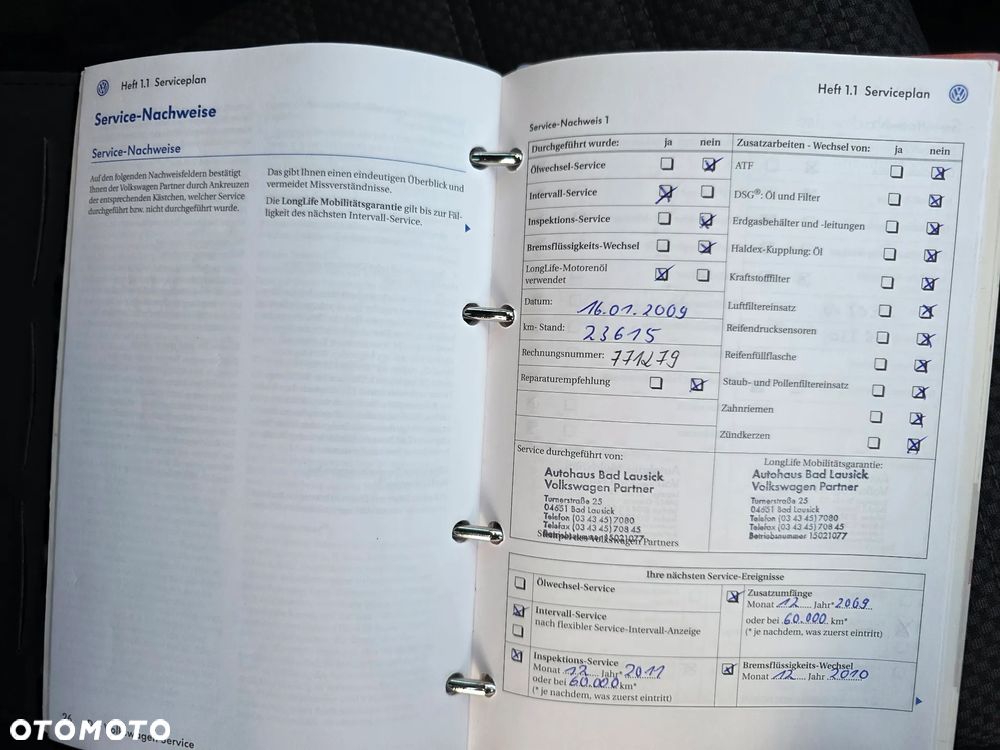 Heft 1.1 Serviceplan
Service-Nachweise
Service-Nachweise
Auf den folgenden Nachweisfeldern bestätigt
Ihnen der Volkswagen Partner durch Ankreuzen
der entsprechenden Kästchen, welcher Service
durchgeführt bzw. nicht durchgeführt wurde.
Das gibt Ihnen einen eindeutigen Überblick und
vermeidet Missverständnisse.
Die LongLife Mobilitätsgarantie gilt bis zur Fäl-
ligkeit des nächsten Intervall-Service.
26
Volkswagen Service
Heft 1.1 Serviceplan
Service-Nachweis 1
Durchgeführt wurde: ja nein
Ölwechsel-Service
Intervall-Service
Inspektions-Service
Bremsflüssigkeits-Wechsel
LongLife-Motorenöl
verwendet
Datum: 16.01.2009
km- Stand: 23615
Rechnungsnummer: 771279
Reparaturempfehlung
Zusatzarbeiten - Wechsel von: ja nein
ATF
DSG®: Öl und Filter
Erdgasbehälter und -leitungen
Haldex-Kupplung: Öl
Kraftstofffilter
Luftfiltereinsatz
Reifendrucksensoren
Reifenfüllflasche
Staub- und Pollenfiltereinsatz
Zahnriemen
Zündkerzen
Service durchgeführt von:
Autohaus Bad Lausick
Volkswagen Partner
Turnerstraße 25
04651 Bad Lausick
Telefon (03 43 45) 7080
Telefax (03 43 45) 708 45
Betriebsnummer 15021077
Stempel des Volkswagen Partners
LongLife Mobilitätsgarantie:
Autohaus Bad Lausick
Volkswagen Partner
Turnerstraße 25
04651 Bad Lausick
Telefon (03 43 45) 7080
Telefax (03 43 45) 708 45
Betriebsnummer 15021077
Ihre nächsten Service-Ereignisse
Ölwechsel-Service
Intervall-Service
nach flexibler Service-Intervall-Anzeige
Inspektions-Service
Monat 12 Jahr* 2011
oder bei 60.000 km*
(* je nachdem, was zuerst eintritt)
Zusatzumfänge
Monat 12 Jahr* 2009
oder bei 60.000 km*
(* je nachdem, was zuerst eintritt)
Bremsflüssigkeits-Wechsel
Monat 12 Jahr 2010
OTOMOTO